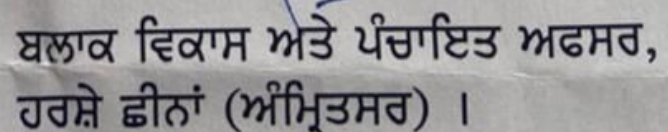 ਬਲਾਕ ਵਿਕਾਸ ਅਤੇ ਪੰਚਾਇਤ ਅਫਸਰ,
ਹਰਸ਼ੇ ਛੀਨਾਂ (ਅੰਮ੍ਰਿਤਸਰ) ।